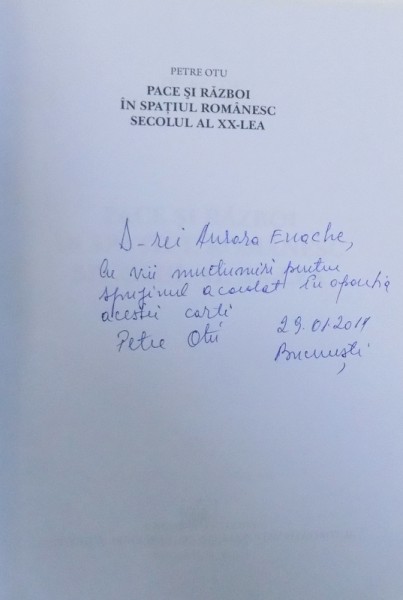 PETRE OTU
PACE ȘI RĂZBOI
ÎN SPAȚIUL ROMÂNESC
SECOLUL AL XX-LEA
D-rei Aurora Enache,
Cu vii mulțumiri pentru
sprijinul acordat în apariția
acestei cărți
Petre Otu 29.01.2014
București